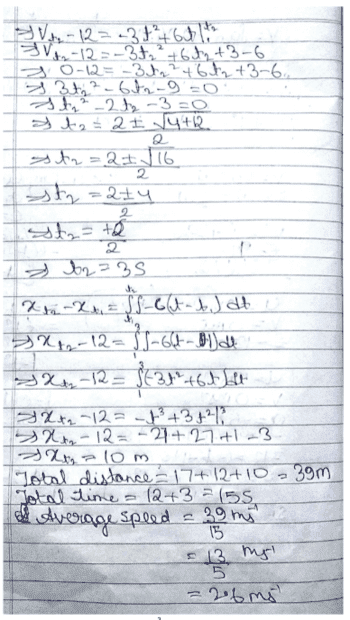 ⇒ V_{t₂} - 12 = -3t² + 6t |₁^{t₂}
⇒ V_{t₂} - 12 = -3t₂² + 6t₂ + 3 - 6
⇒ 0 - 12 = -3t₂² + 6t₂ + 3 - 6
⇒ 3t₂² - 6t₂ - 9 = 0
⇒ t₂² - 2t₂ - 3 = 0
⇒ t₂ = (2 ± √(4+12))/2
⇒ t₂ = (2 ± √16)/2
⇒ t₂ = (2 ± 4)/2
⇒ t₂ = /2
⇒ t₂ = 3s
x_{t₂} - x_{t₁} = ∫_{t₁}^{t₂} ∫ -6(t - t₁) dt
⇒ x_{t₂} - 12 = ∫₁³ ∫ -6(t - 1) dt
⇒ x_{t₂} - 12 = ∫₁³ (-3t² + 6t) dt
⇒ x_{t₂} - 12 = -t³ + 3t² |₁³
⇒ x_{t₂} - 12 = -27 + 27 + 1 - 3
⇒ x_{t₂} = 10 m
Total distance = 17 + 12 + 10 = 39m
Total time = 12 + 3 = 15s
Average speed = 39/15 ms⁻¹
= 13/5 ms⁻¹
= 2.6 ms⁻¹